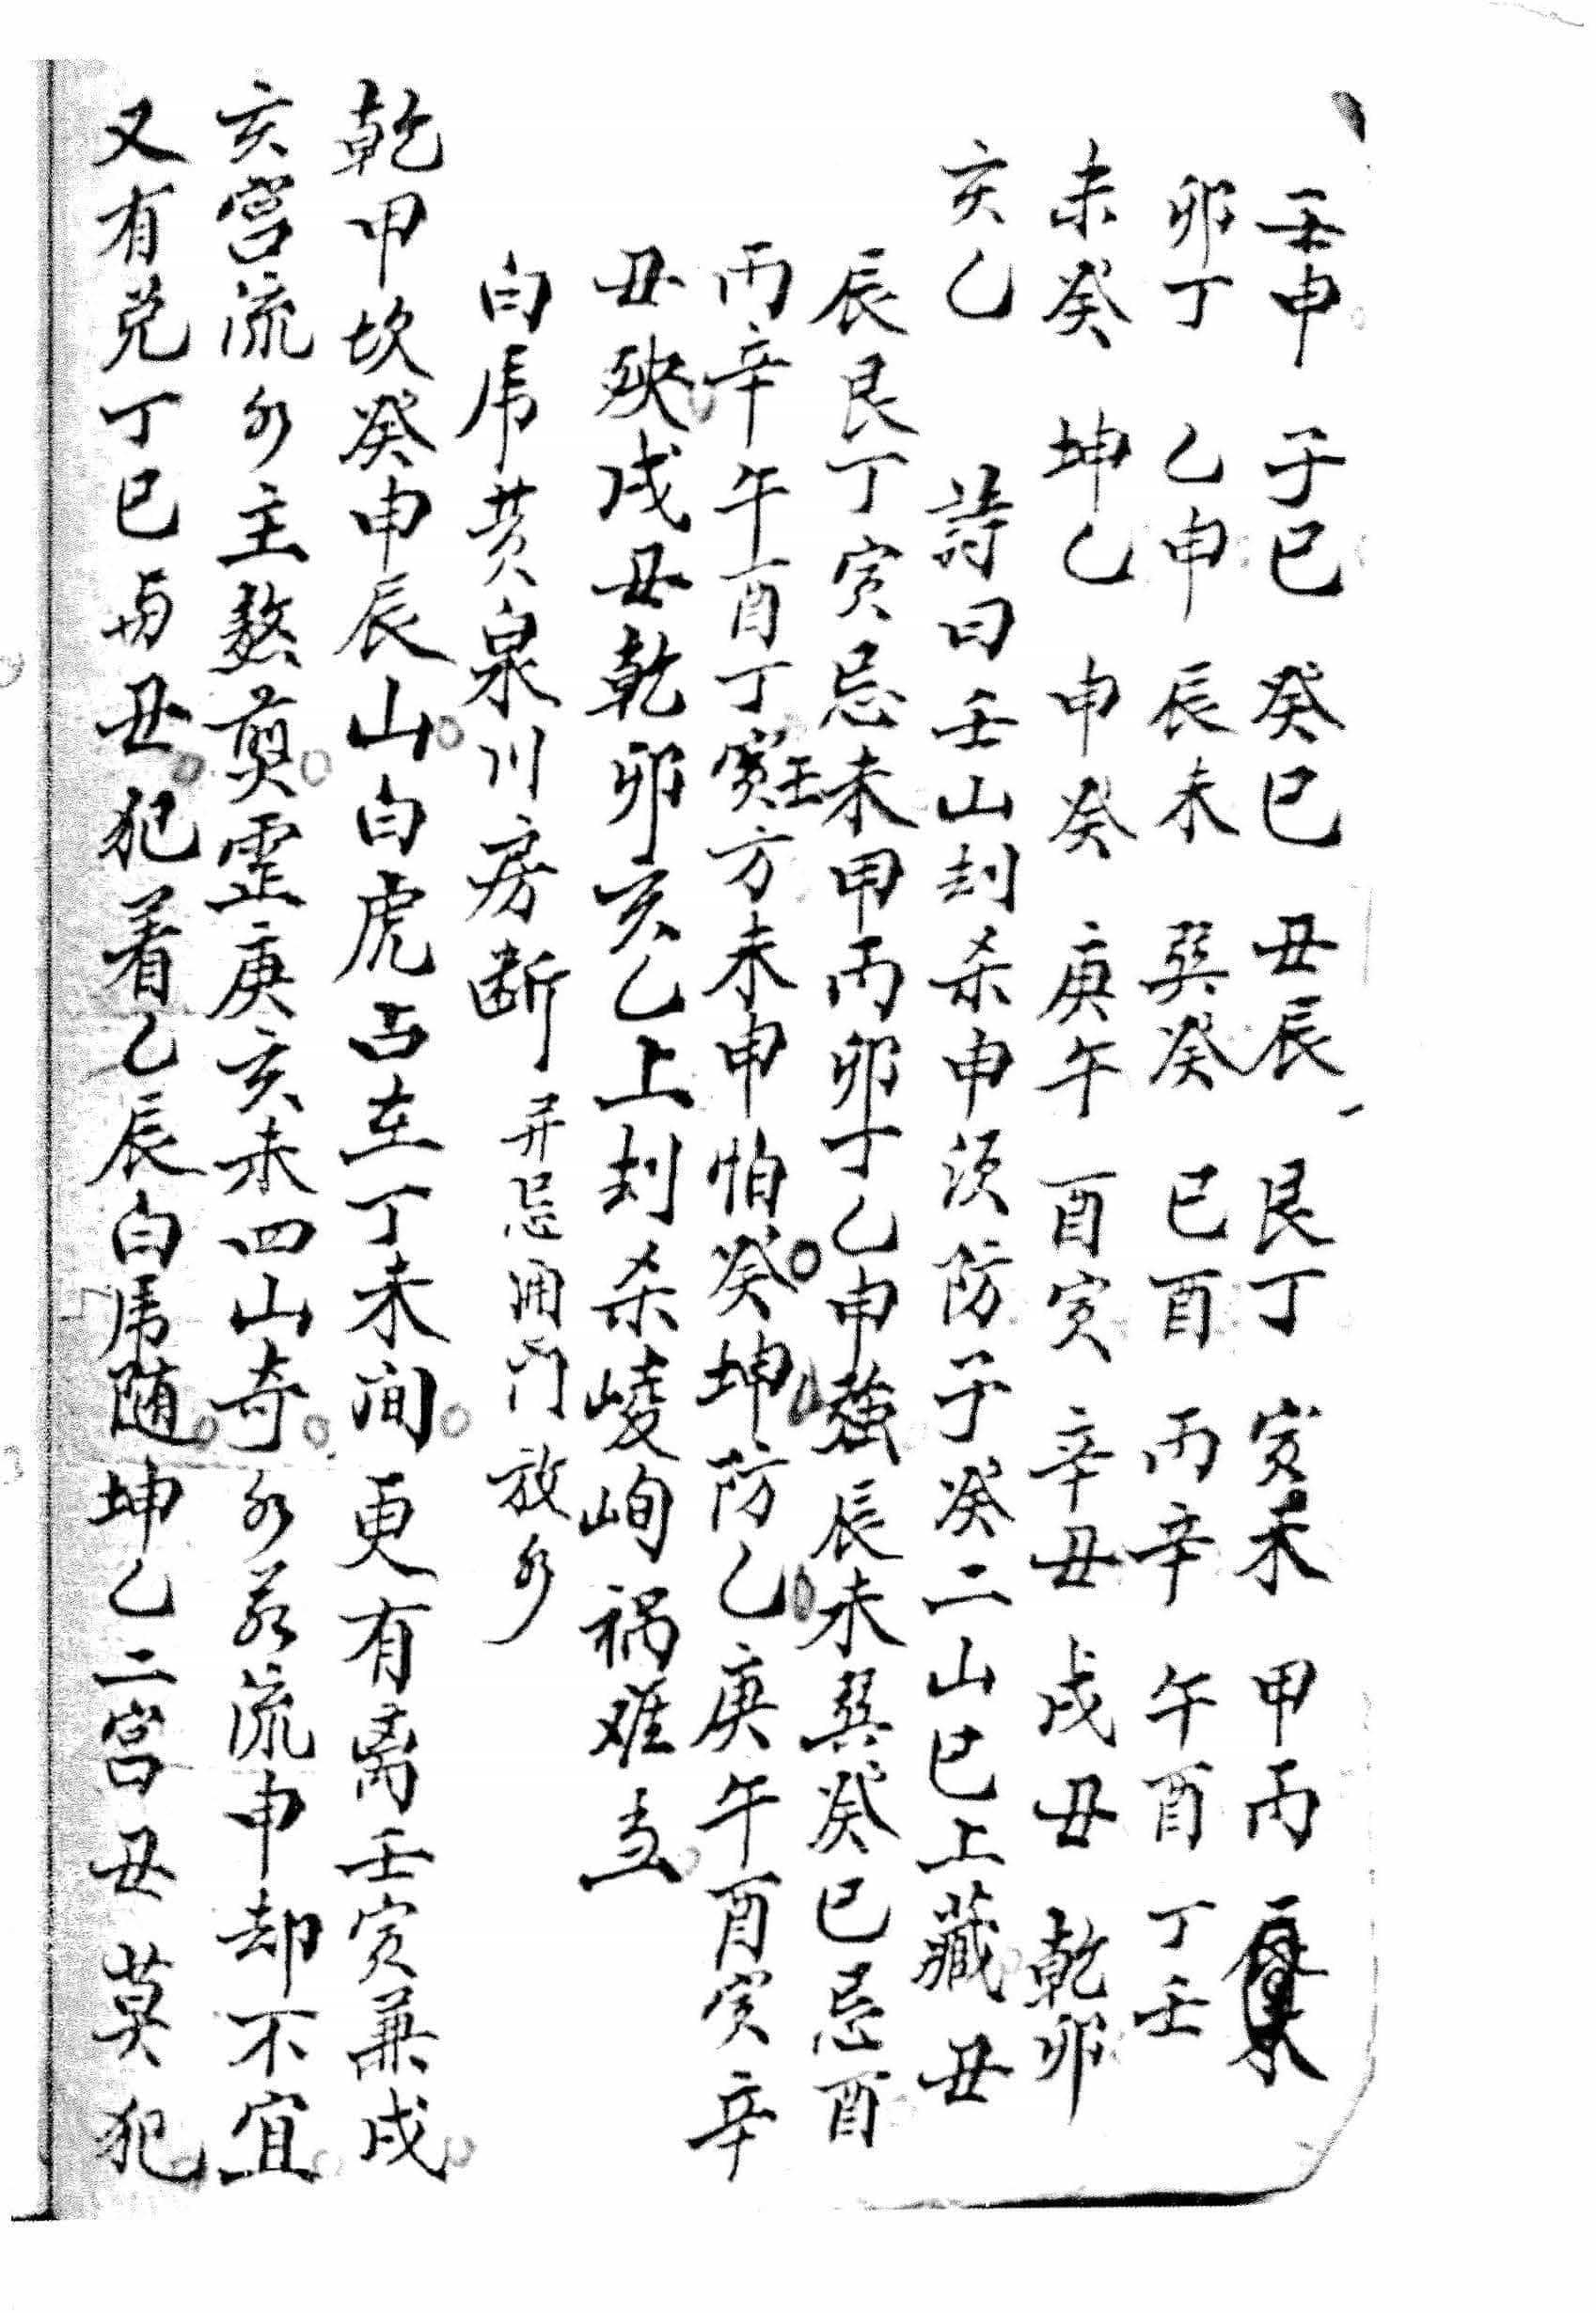 壬申 子巳 癸巳 丑辰 艮丁 寅未 甲丙
卯丁 乙申 辰未 巽癸 巳酉 丙辛 午酉 丁壬
未癸 坤乙 申癸 庚午 酉寅 辛丑 戌丑 乾卯
亥乙 詩曰壬山刦杀申须防子癸二山巳上藏丑
辰艮丁寅忌未甲丙卯丁乙申強辰未巽癸巳忌酉
丙辛午酉丁寅壬方未申怕癸坤防乙庚午酉寅辛
丑殃戌丑乾卯亥乙上刦杀崚峋祸难当
白虎黄泉川房断 并忌用门放水
乾甲坎癸申辰山白虎占在丁未间更有离壬寅兼戌
亥宫流水主熬煎霊庚亥未四山奇水若流申却不宜
又有兑丁巳与丑犯着乙辰白虎随坤乙二宫丑莫犯